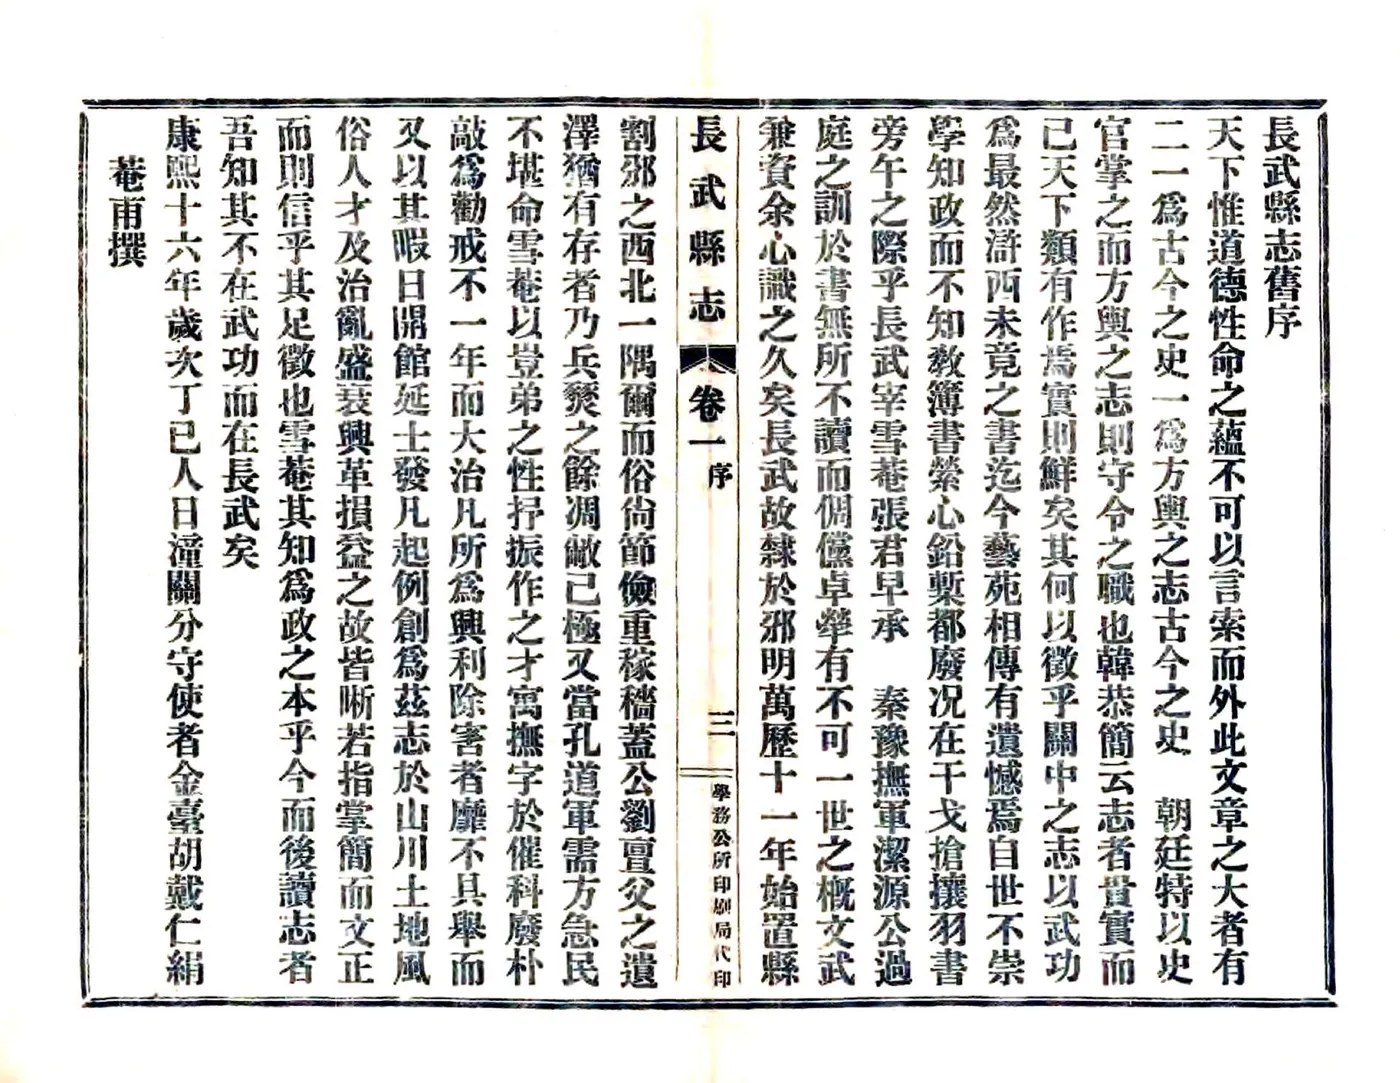 長武縣志舊序
天下惟道德性命之蘊不可以言索而外此文章之大者有
二一爲古今之史一爲方輿之志古今之史　朝廷特以史
官掌之而方輿之志則守令之職也韓恭簡云志者貴實而
已天下類有作焉實則鮮矣其何以徵乎關中之志以武功
爲最然滸西未竟之書迄今藝苑相傳有遺憾焉自世不崇
學知政而不知教簿書縈心鉛槧都廢况在干戈搶攘羽書
旁午之際乎長武宰雪菴張君早承　秦豫撫軍潔源公過
庭之訓於書無所不讀而倜儻卓犖有不可一世之槪文武
兼資余心識之久矣長武故隸於邠明萬歷十一年始置縣
長武縣志
卷一
序
三
學務公所印刷局代印
割邠之西北一隅爾而俗尙節儉重稼穡蓋公劉亶父之遺
澤猶有存者乃兵燹之餘凋敝已極又當孔道軍需方急民
不堪命雪菴以豈弟之性抒振作之才寓撫字於催科廢朴
敲爲勸戒不一年而大治凡所爲興利除害者靡不具舉而
又以其暇日開館延士發凡起例創爲茲志於山川土地風
俗人才及治亂盛衰興革損益之故皆晰若指掌簡而文正
而則信乎其足徵也雪菴其知爲政之本乎今而後讀志者
吾知其不在武功而在長武矣
康熙十六年歲次丁巳人日潼關分守使者金臺胡戴仁絹
菴甫撰